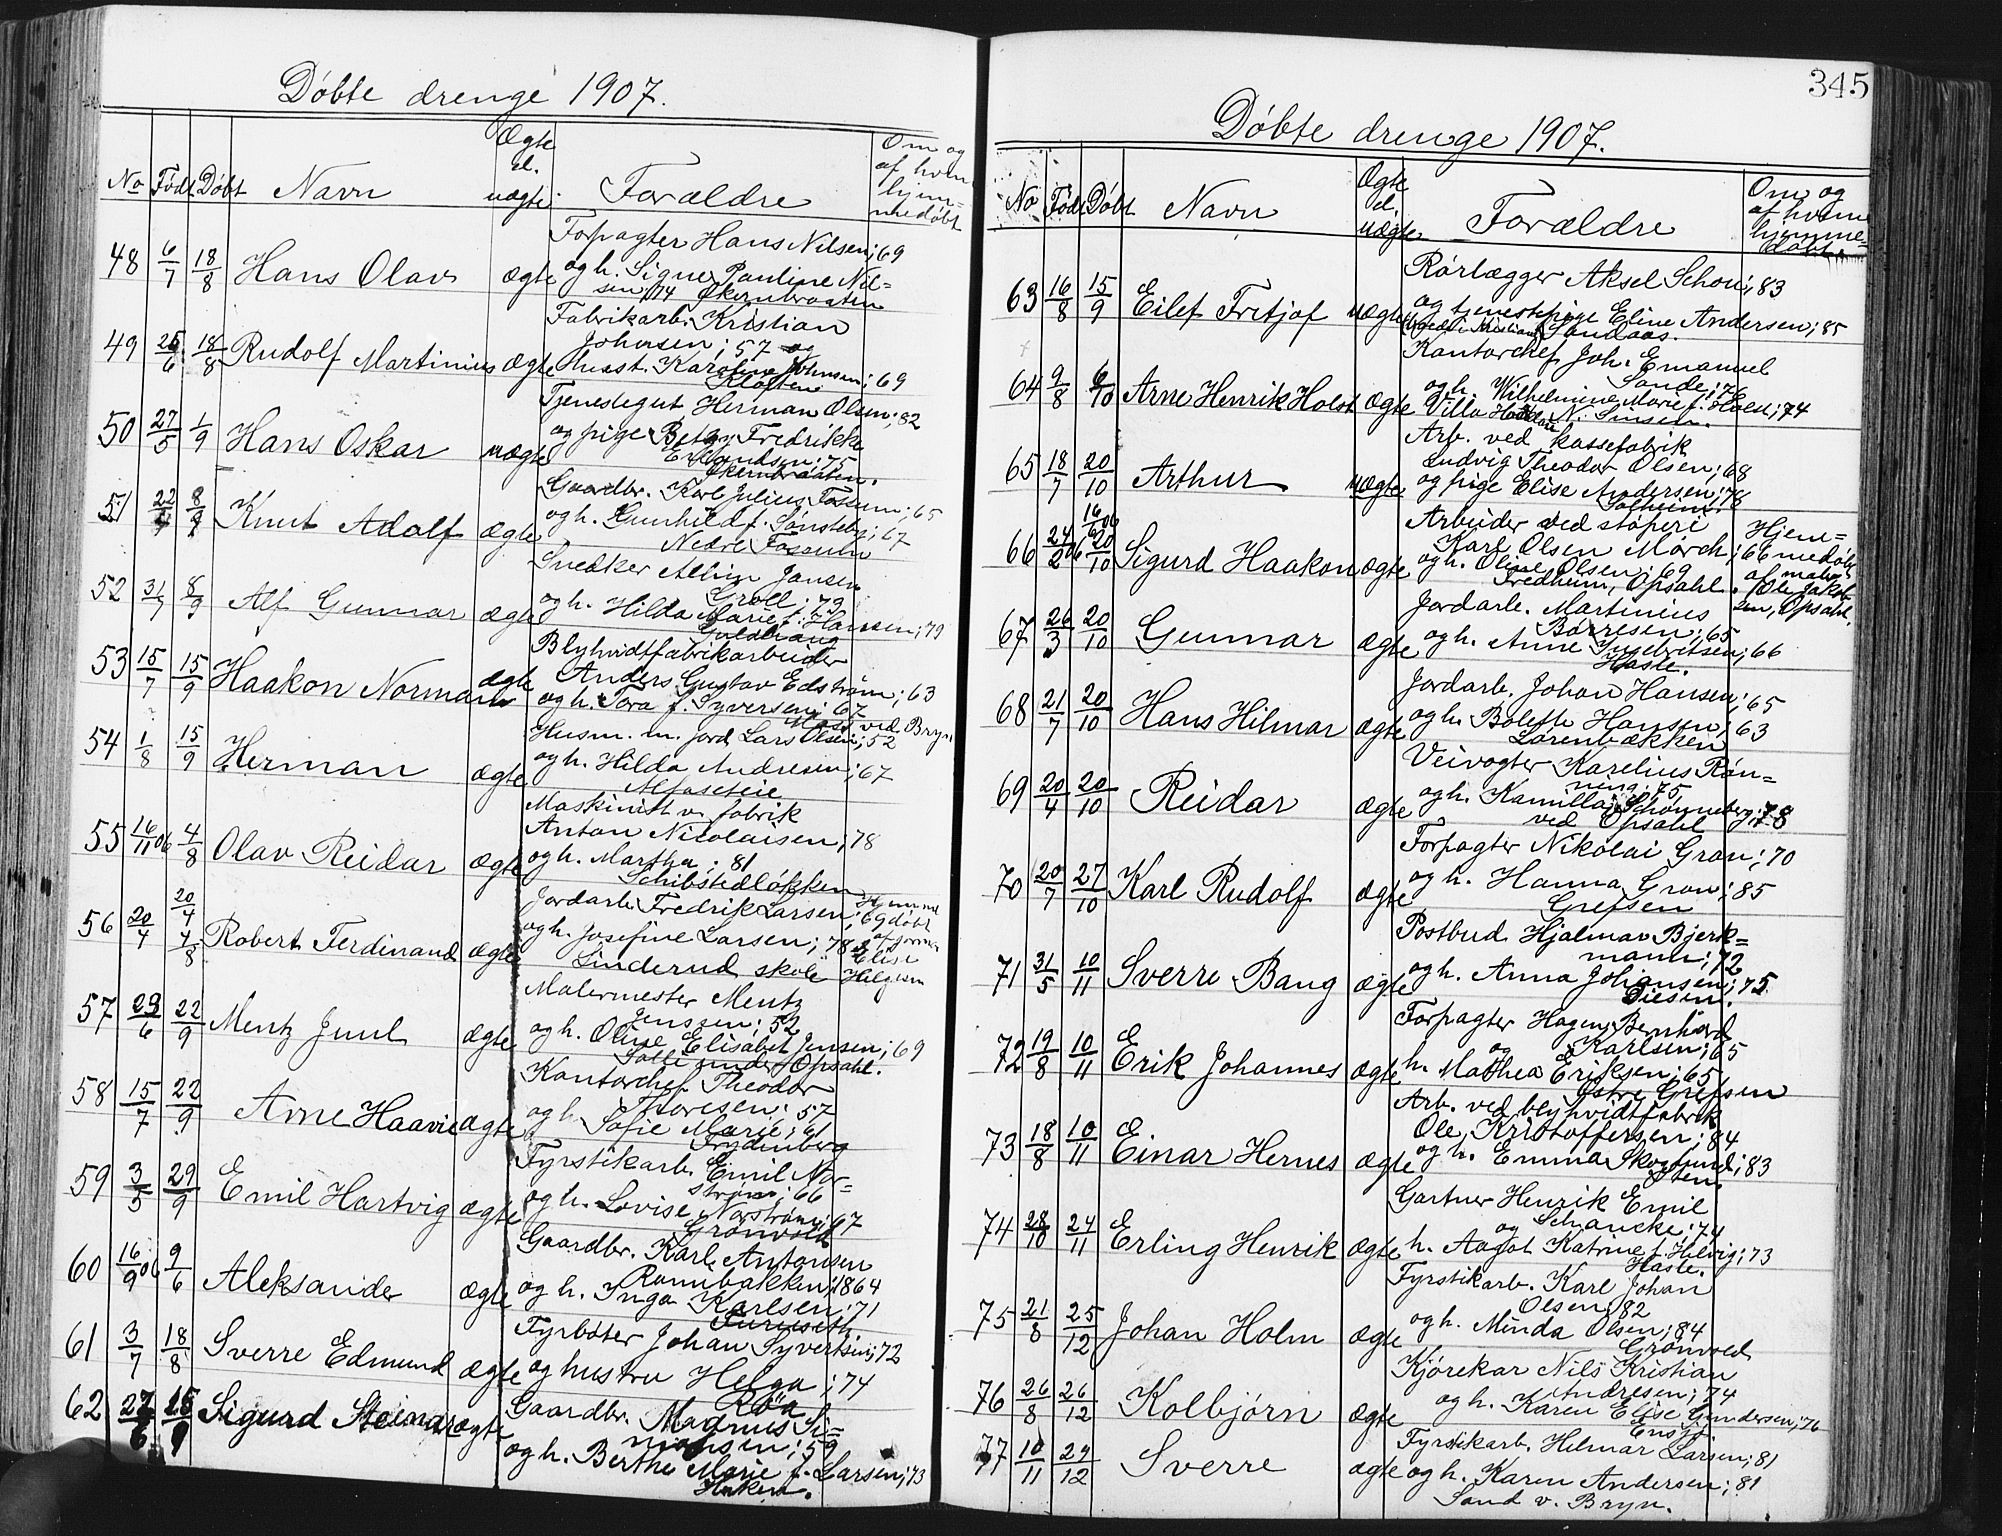 Døbte drenge 1907.
No Født Døbt Navn Ægte el. uægte. Forældre Om og af hvem hjemmedøbt
48 6/7 18/8 Hans Olav ægte Forpagter Hans Nilsen; 69
og h. Signe Pauline Nil=
sen; 74 Økernbraaten
49 25/6 18/8 Rudolf Martinius ægte Fabrikarb. Kristian
Johnsen; 57 og
Husst. Karoline Johnsen; 69
Kløften
50 27/5 1/9 Hans Oskar uægte Tjenestegut Herman Olsen; 82
og pige Betzy Fredrikke
Erlandsen; 75
Økernbraaten.
51 22/ 8/9 Knut Adolf ægte Gaardbr. Karl Julius Fossum; 65
og h. Gunhild f. Sønsteby; 67
Nedre Fossum
52 31/7 8/9 Alf Gunnar ægte Snedker Albin Jansen
Groll; 73
og h. Hilda Marie f. Hansen; 79
Guldhaug
53 15/7 15/9 Haakon Normann ægte Blyhvidtfabrikarbeider
Anders Gustav Edstrøm; 63
og h. Tora f. Syversen; 67
ved Bryn
54 1/8 15/9 Herman ægte Husm. m. jord Lars Olsen; 52
og h. Hilda Andresen; 67
Alfaseteie
55 16/11 06 4/8 Olav Reidar ægte Maskinist v. fabrik
Anton Nicolaisen; 78
og h. Martha; 81
Schibstedløkken
56 20/4 20/4 4/8 Robert Ferdinand ægte Jordarb. Fredrik Larsen; 69
og h. Josefine Larsen; 78
Linderud skole
57 29/6 22/9 Mentz Juul ægte Malermester Mentz
Jenssen; 52
og h. Oline Elisabet Jensen; 69
under Opsahl.
58 15/7 22/9 Arne Haavie ægte Kontorchef Theodor
Thoresen; 57
og h. Sofie Marie; 61
Frydenberg
59 3/5 29/9 Emil Hartvig ægte Fyrstikarb. Emil Nor=
strøm; 66
og h. Lovise Norstrøm; 67
Grønvold
60 16/9 06 9/6 Aleksander ægte Gaardbr. Karl Antonsen
Rannbakken; 1864
og h. Inga Karlsen; 71
Furuseth
61 3/7 18/8 Sverre Edmund ægte Fyrbøter Johan Syvertsen; 72
og hustru Helga; 74
Røa
62 27/6 15/9 Sigurd Steinar ægte Gaardbr. Magnus Si=
monsen; 59
og h. Berthe Marie f. Larsen; 73
Haken.
345
Døbte drenge 1907.
No Født Døbt Navn Ægte el. uægte Forældre Om og af hvem hjemme=døbt
63 16/8 15/9 Eilef Fritjof uægte Rørlægger Aksel Schou; 83
og tjenestepige Eline Andersen; 85
Sandaas.
64 9/8 6/10 Arne Henrik Holst ægte Kontorchef Joh. Emanuel
Sande; 76
og h. Wilhelmine Marie f. Hoen; 74
Villa N. Sinsen.
65 18/7 20/10 Arthur uægte Arb. ved kassefabrik
Ludvig Theodor Olsen; 68
og pige Elise Andersen; 78
Solheim.
66 24/2 06 16/6 06 20/10 Sigurd Haakon ægte Arbeider ved støperi
Karl Olsen Mørch; 66
og h. Oline Olsen; 69
Fredheim, Opsahl.
Hjem=
medøbt
af maler
Ole Jakob=
sen, Opsahl.
67 26/3 20/10 Gunnar ægte Jordarb. Martinius
Børresen; 65
og h. Anne Ingebritsen; 66
Hasle.
68 21/7 20/10 Hans Hilmar ægte Jordarb. Johan Hansen; 65
og h. Bolette Hansen; 63
Lørenbækken
69 20/4 20/10 Reidar ægte Veivogter Karelius Røn=
ning; 75
og h. Kamilla Schønneberg; 78
ved Opsahl
70 20/7 27/10 Karl Rudolf ægte Forpagter Nikolai Gran; 70
og h. Hanna Gran; 85
Grefsen
71 31/5 10/11 Sverre Bang ægte Postbud Hjalmar Bjerk=
mann; 72
og h. Anna Johansen; 75.
Disen.
72 19/8 10/11 Erik Johannes ægte Forpagter Hagen Bernhard
og Karlsen; 65
h. Mathea Eriksen; 65
Østre Grefsen
73 18/8 10/11 Einar Hernes ægte Arb. ved blyhvidtfabrik
Ole Kristoffersen; 84
og h. Emma Skoglund; 83
Østen.
74 28/10 24/11 Erling Henrik ægte Gartner Henrik Emil
og Schancke; 74
h. Aagot Katrine f. Helvig; 73
Hasle.
75 21/8 25/12 Johan Holm ægte Fyrstikarb. Karl Johan
Olsen; 82
og h. Minda Olsen; 84
Grønvold
76 26/8 26/12 Kolbjørn ægte Kjørekar Nils Kristian
Andresen; 74
og h. Karen Elise Gundersen; 76
Ensjø
77 10/11 29/12 Sverre ægte Fyrstikarb. Hilmar Larsen; 81
og h. Karen Andersen; 81
Sand v. Bryn.